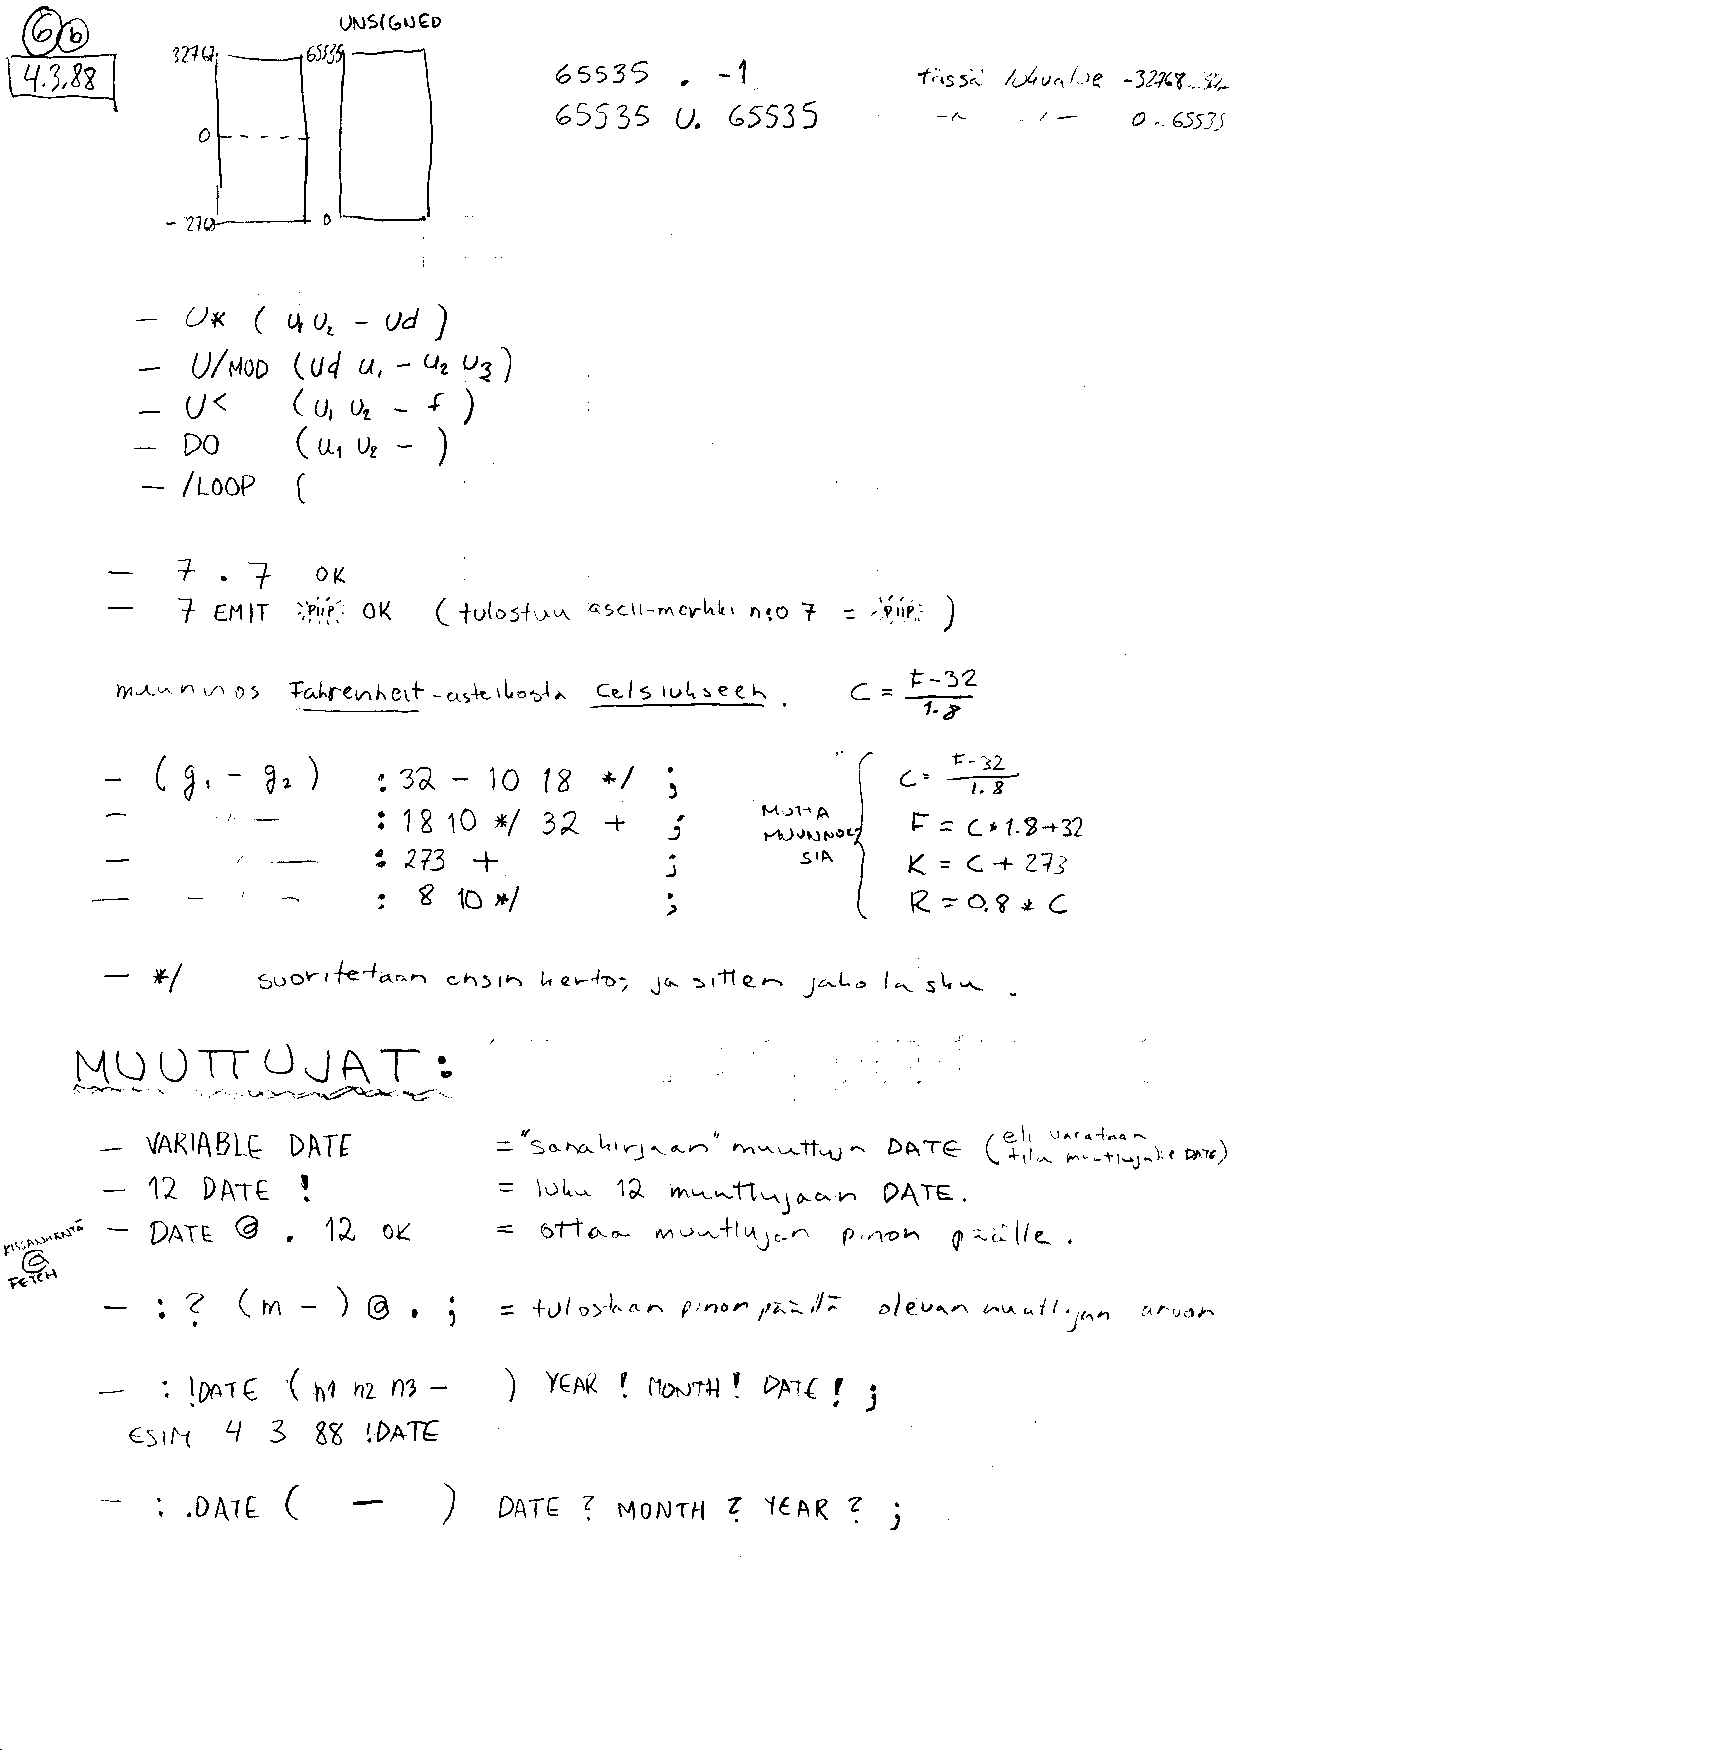 6 b
4.3.88
UNSIGNED
32767 65535
0
- 2768 0
65535 . -1 tässä lukualue -32768..32..
65535 U. 65535 -"- 0..65535
- U* ( u1 U2 - Ud )
- U/MOD (Ud u1 - u2 U3)
- U< (U1 U2 - f )
- DO (u1 U2 - )
- /LOOP (
- 7 . 7 OK
- 7 EMIT PIIP OK (tulostuu ascii-merkki n:o 7 = PIIP )
muunnos Fahrenheit-asteikosta Celsiukseen. C = F-32 / 1.8
- ( g1 - g2 ) : 32 - 10 18 */ ; C = F-32 / 1.8
- -"- : 18 10 */ 32 + ; F = C*1.8+32
- -"- : 273 + ; K = C + 273
- -"- : 8 10 */ ; R = 0.8 * C
MUITA
MUUNNOK
SIA
- */ suoritetaan ensin kerto- ja sitten jakolasku.
MUUTTUJAT:
- VARIABLE DATE = "sanakirjaan" muuttuja DATE (eli varataan tila muuttujalle DATE)
- 12 DATE ! = luku 12 muuttujaan DATE.
- DATE @ . 12 OK = ottaa muuttujan pinon päälle.
KISSANHÄNTÄ
@
FETCH
- : ? (m - ) @ . ; = tulostaan pinon päällä olevan muuttujan arvon
- : !DATE ( n1 n2 n3 - ) YEAR ! MONTH ! DATE ! ;
ESIM 4 3 88 !DATE
- : .DATE ( - ) DATE ? MONTH ? YEAR ? ;